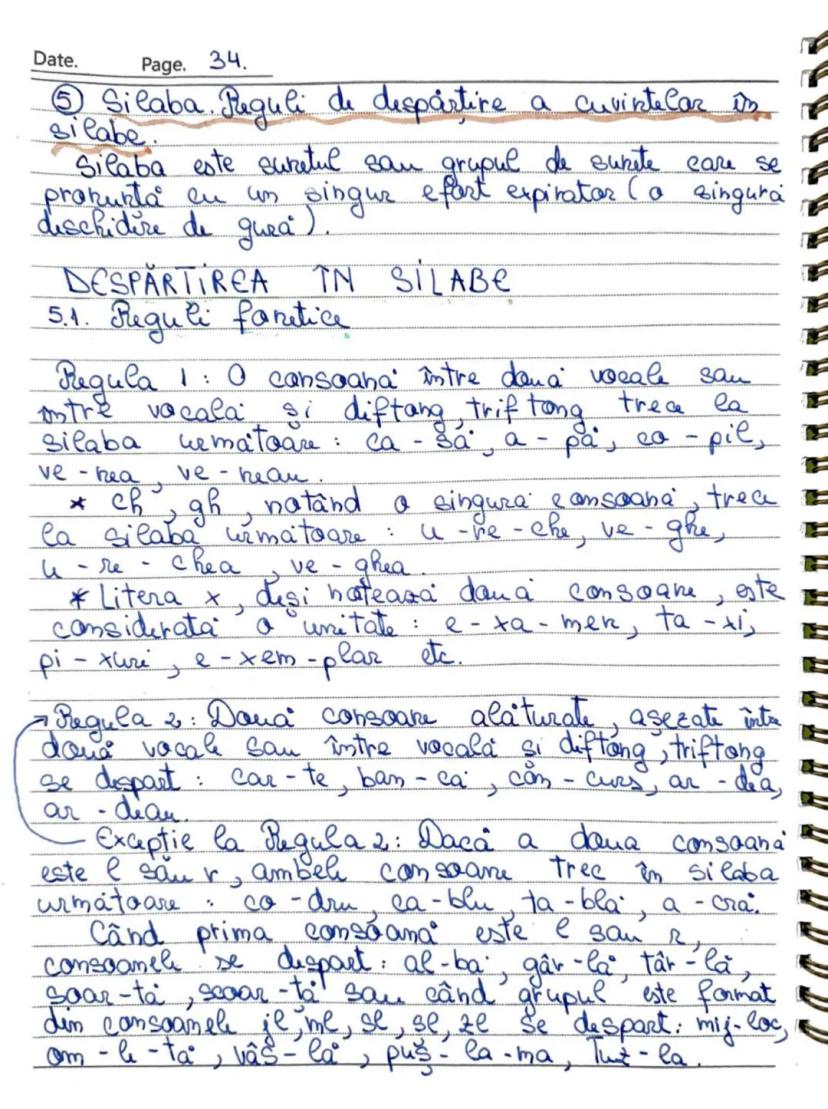 Date. Page. 34.
⑤ Silaba. Reguli de despărțire a cuvintelor în
silabe.
Silaba este sunetul sau grupul de sunete care se
pronunță cu un singur efort expirator (o singură
deschidere de gură).
DESPĂRȚIREA ÎN SILABE
5.1. Reguli fonetice
Regula 1: O consoană între două vocale sau
între vocală și diftong, triftong trece la
silaba următoare: ca - să, a - pă, co - pil,
ve - nea, ve - neau.
* ch, gh, notând o singură consoană, trece
la silaba următoare: u - re - che, ve - ghe,
u - re - chea, ve - ghea.
* Litera x, deși notează două consoane, este
considerată o unitate: e - xa - men, ta - xi,
pi - xuri, e - xem - plar etc.
Regula 2: Două consoane alăturate, așezate între
două vocale sau între vocală și diftong, triftong
se despart: car - te, ban - că, con - curs, ar - dea,
ar - deau.
Excepție la Regula 2: Dacă a doua consoană
este l sau r, ambele consoane trec în silaba
următoare: co - dru, ca - blu, ta - blă, a - cră.
Când prima consoană este l sau r,
consoanele se despart: al - ba, gâr - lă, târ - lă,
soar - tă, scoar - ță sau când grupul este format
din consoanele jl, ml, sl, șl, zl se despart: mij - loc,
om - le - tă, vâs - lă, puș - la - ma, Tuz - la.